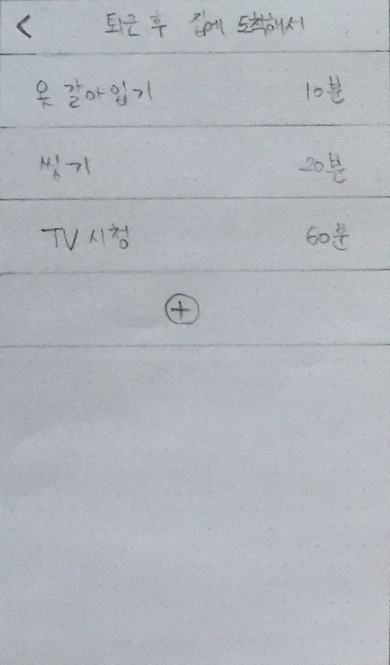 < 퇴근 후 집에 도착해서
옷 갈아입기 10분
씻기 20분
TV 시청 60분
+